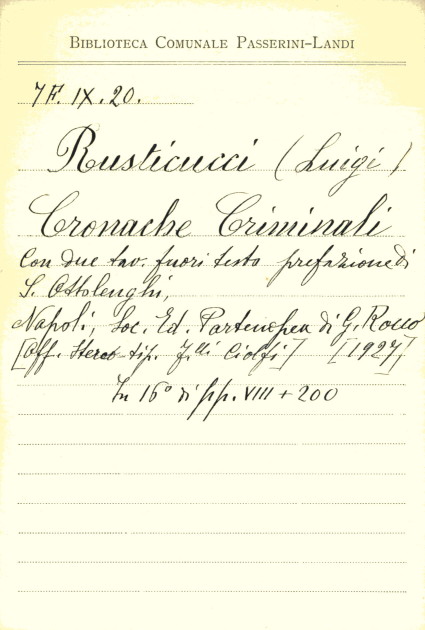 BIBLIOTECA COMUNALE PASSERINI-LANDI
7F. IX. 20.
Rusticucci (Luigi)
Cronache Criminali
Con due tav. fuori testo prefazione di
S. Ottolenghi,
Napoli, Soc. Ed. Partenopea di G. Rocco
[Off. Stereo-tip. F.lli Ciolfi] [1927]
In 16° di pp. VIII + 200